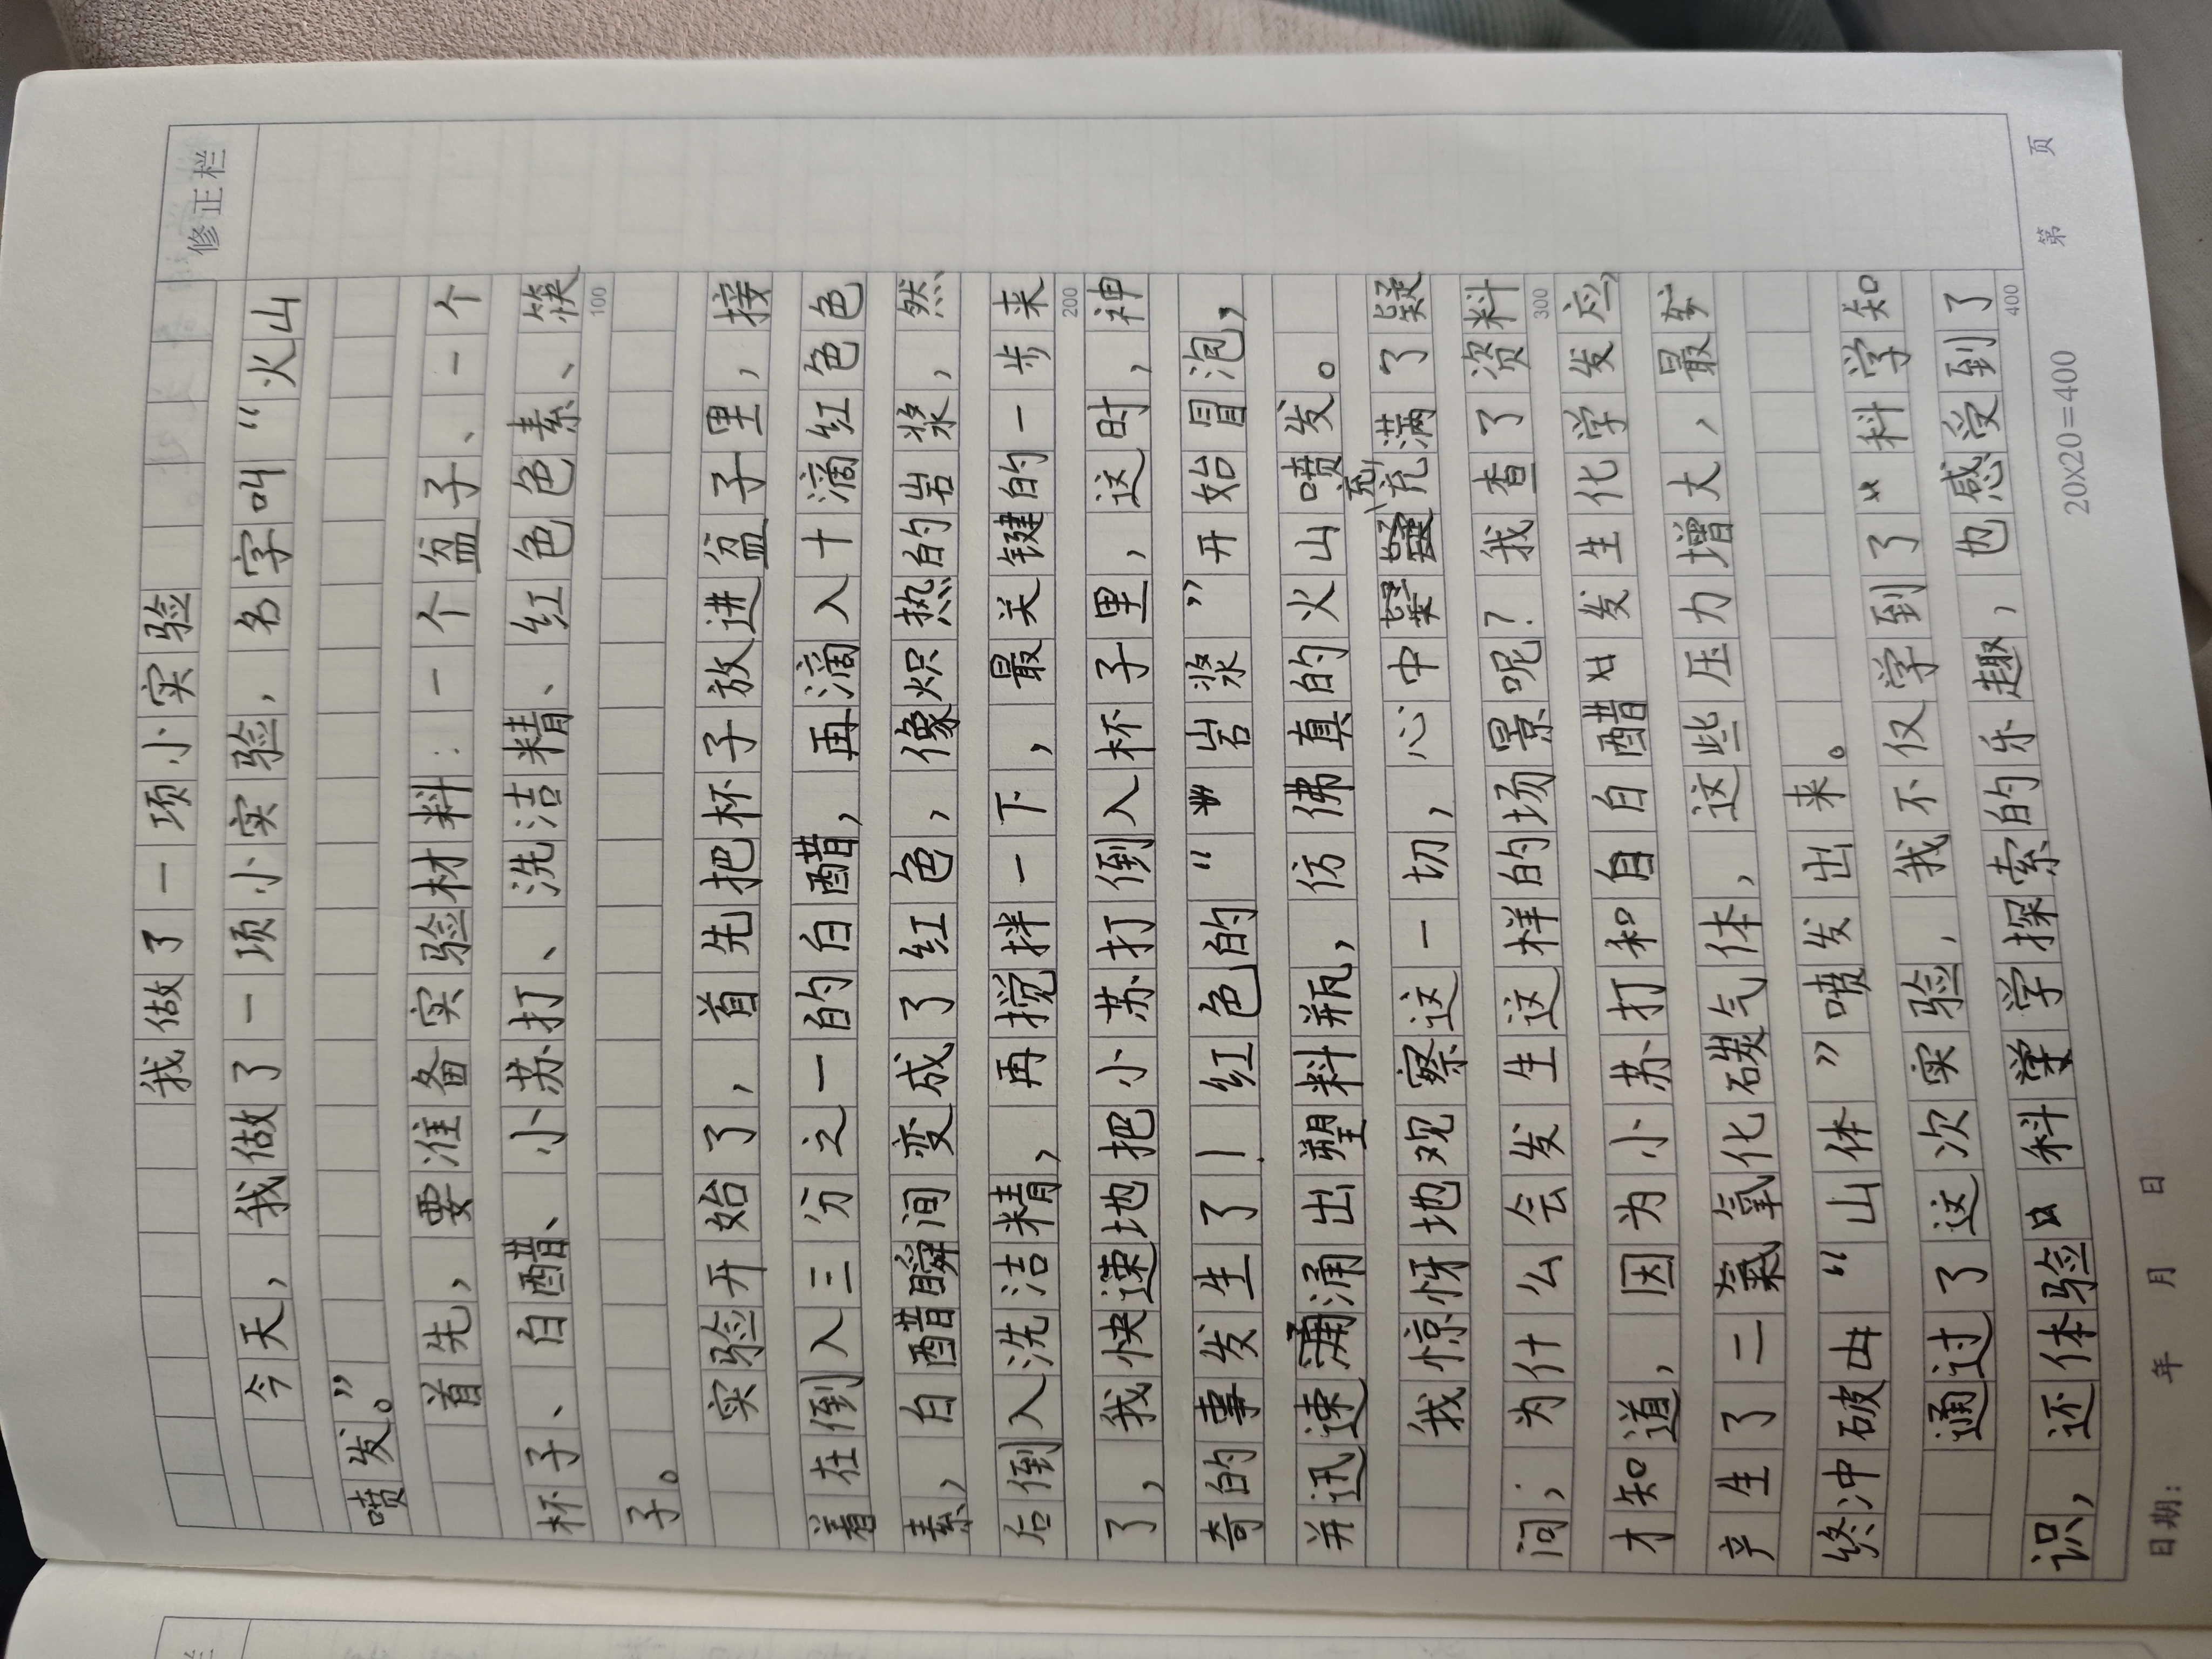 修正栏
我做了一项小实验
今天，我做了一项小实验，名字叫“火山
喷发”。
首先，要准备实验材料：一个盆子、一个
杯子、白醋、小苏打、洗洁精、红色色素、筷
100
子。
实验开始了，首先把杯子放进盆子里，接
着在倒入三分之一的白醋，再滴入十滴红色色
素，白醋瞬间变成了红色，像炽热的岩浆，然
后倒入洗洁精，再搅拌一下，最关键的一步来
200
了，我快速地把小苏打倒入杯子里，这时，神
奇的事发生了—红色的“岩浆”开始冒泡，
并迅速涌出塑料瓶，仿佛真的火山喷发。
我惊讶地观察这一切，心中充满了疑
问；为什么会发生这样的场景呢？我查了资料
300
才知道，因为小苏打和白醋发生化学发应，
产生了二氧化碳气体，这些压力增大，最
终冲破“山体”喷发出来。
通过了这次实验，我不仅学到了科学知
识，还体验科学探索的乐趣，也感受到了
400
20×20=400
日期： 年 月 日
第 页